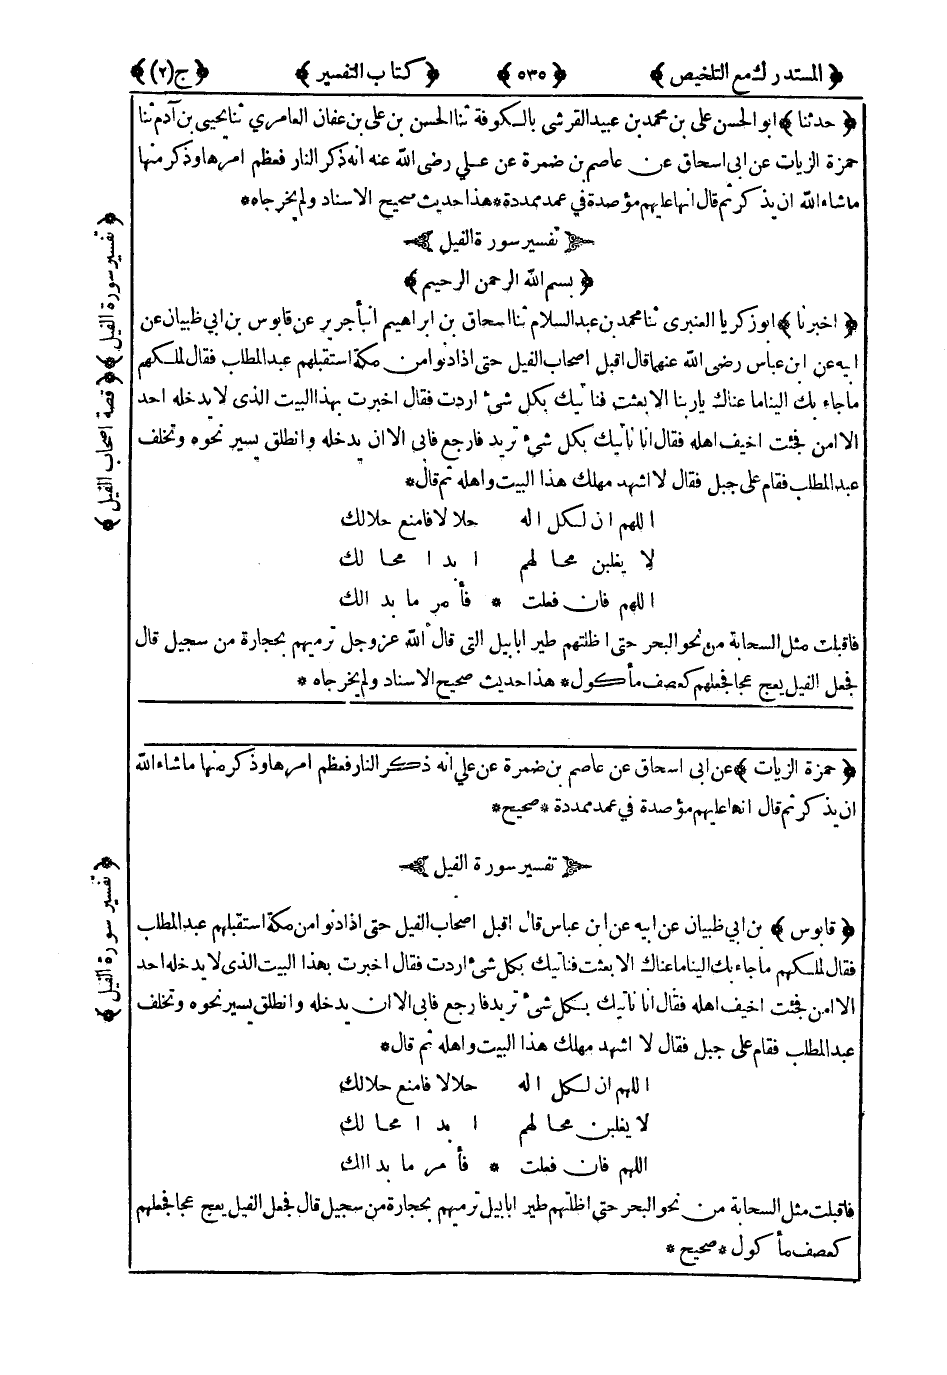 ﴿ المستدرك مع التلخيص ﴾ ﴿ ٥٣٥ ﴾ ﴿ كتاب التفسير ﴾ ﴿ ج (٢) ﴾
﴿ حدثنا ﴾ ابو الحسن علي بن محمد بن عبيد القرشي بالكوفة ثنا الحسن بن علي بن عفان العامري ثنا يحيى بن آدم ثنا
حمزة الزيات عن ابي اسحاق عن عاصم بن ضمرة عن علي رضى الله عنه انه ذكر النار فعظم امرها وذكر منها
ما شاء الله ان يذكر ثم قال انها عليهم مؤصدة في عمد ممددة * هذا حديث صحيح الاسناد ولم يخرجاه *
تفسير سورة الفيل
﴿ بسم الله الرحمن الرحيم ﴾
﴿ اخبرنا ﴾ ابو زكريا العنبرى ثنا محمد بن عبد السلام ثنا اسحاق بن ابراهيم انبأ جرير عن قابوس بن ابي ظبيان عن
ابيه عن ابن عباس رضى الله عنهما قال اقبل اصحاب الفيل حتى اذا دنوا من مكة استقبلهم عبد المطلب فقال لملكهم
ما جاء بك الينا ما عناك يا ربنا الا بعثت فنأتيك بكل شئ اردت فقال اخبرت بهذا البيت الذى لا يدخله احد
الا امن فجئت اخيف اهله فقال انا نأتيك بكل شئ تريد فارجع فابى الا ان يدخله وانطلق يسير نحوه وتخلف
عبد المطلب فقام على جبل فقال لا اشهد مهلك هذا البيت واهله ثم قال *
اللهم ان لكل اله حلالا فامنع حلالك
لا يغلبن محالهم ابدا محالك
اللهم فان فعلت * فأمر ما بدالك
فاقبلت مثل السحابة من نحو البحر حتى اظلتهم طير ابابيل التى قال الله عز وجل ترميهم بحجارة من سجيل قال
فجعل الفيل يعج عجا فجعلهم كعصف مأكول * هذا حديث صحيح الاسناد ولم يخرجاه *
﴿ حمزة الزيات ﴾ عن ابى اسحاق عن عاصم بن ضمرة عن علي انه ذكر النار فعظم امرها وذكر منها ما شاء الله
ان يذكر ثم قال انها عليهم مؤصدة في عمد ممددة * صحيح *
تفسير سورة الفيل
﴿ قابوس ﴾ بن ابي ظبيان عن ابيه عن ابن عباس قال اقبل اصحاب الفيل حتى اذا دنوا من مكة استقبلهم عبد المطلب
فقال لملكهم ما جاء بك الينا ما عناك الا بعثت فنأتيك بكل شئ اردت فقال اخبرت بهذا البيت الذى لا يدخله احد
الا امن فجئت اخيف اهله فقال انا نأتيك بكل شئ تريد فارجع فابى الا ان يدخله وانطلق يسير نحوه وتخلف
عبد المطلب فقام على جبل فقال لا اشهد مهلك هذا البيت واهله ثم قال *
اللهم ان لكل اله حلالا فامنع حلالك
لا يغلبن محالهم ابدا محالك
اللهم فان فعلت * فأمر ما بدالك
فاقبلت مثل السحابة من نحو البحر حتى اظلتهم طير ابابيل ترميهم بحجارة من سجيل قال فجعل الفيل يعج عجا فجعلهم
كعصف مأكول * صحيح *
﴿ تفسير سورة الفيل ﴾ ﴿ قصة اصحاب الفيل ﴾
﴿ تفسير سورة الفيل ﴾